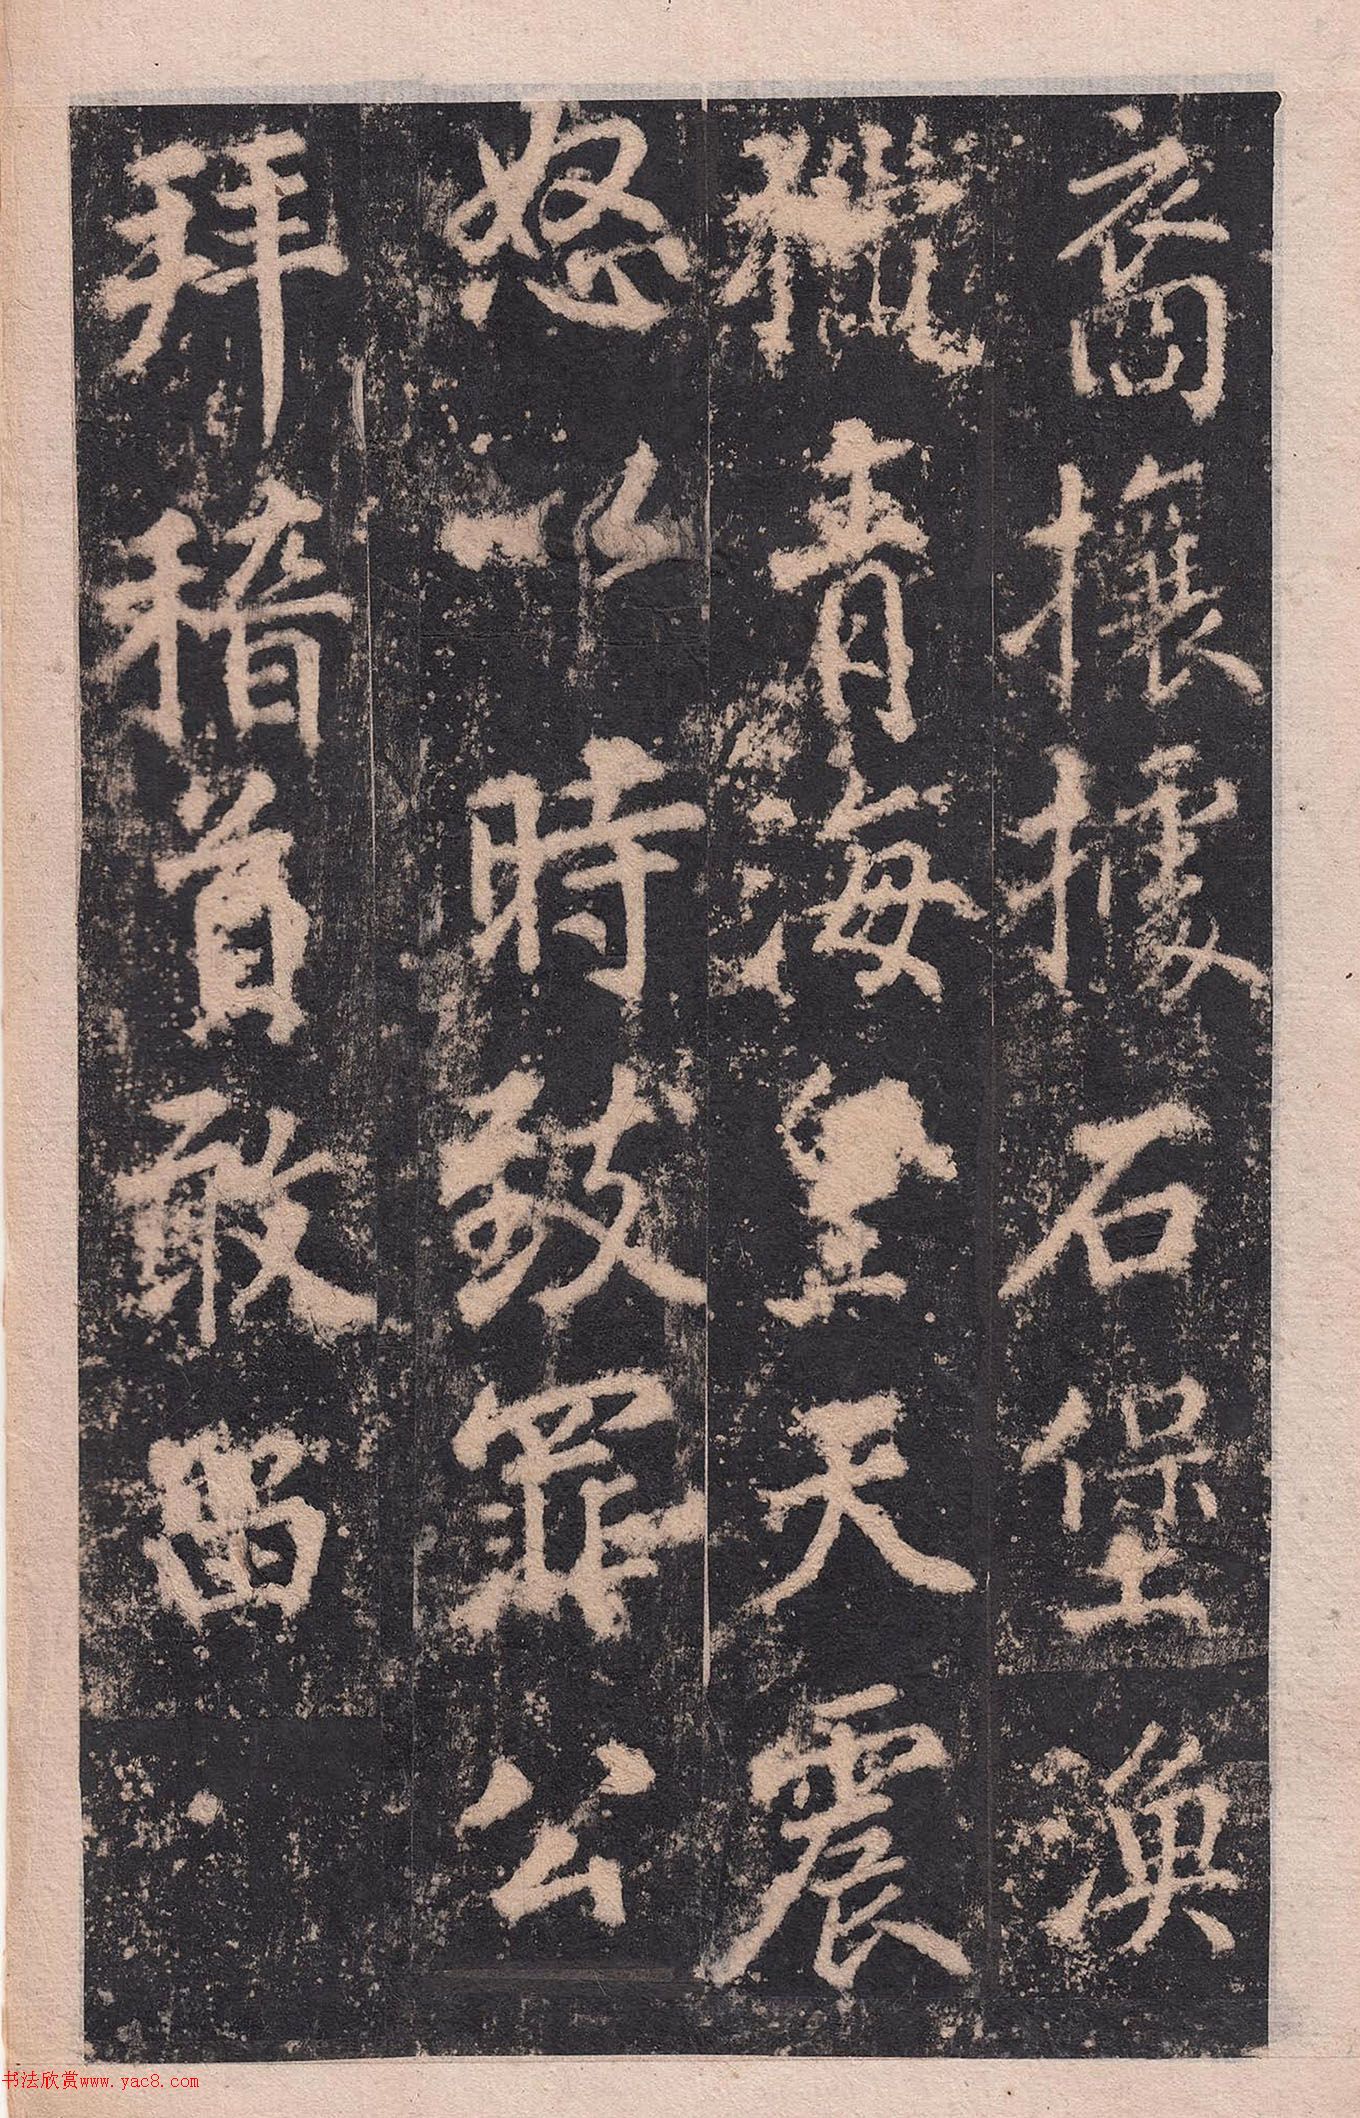 裔攘擾石堡渙
青海皇天震
怒以時致罪公
拜稽首敢留
书法欣赏www.yac8.com